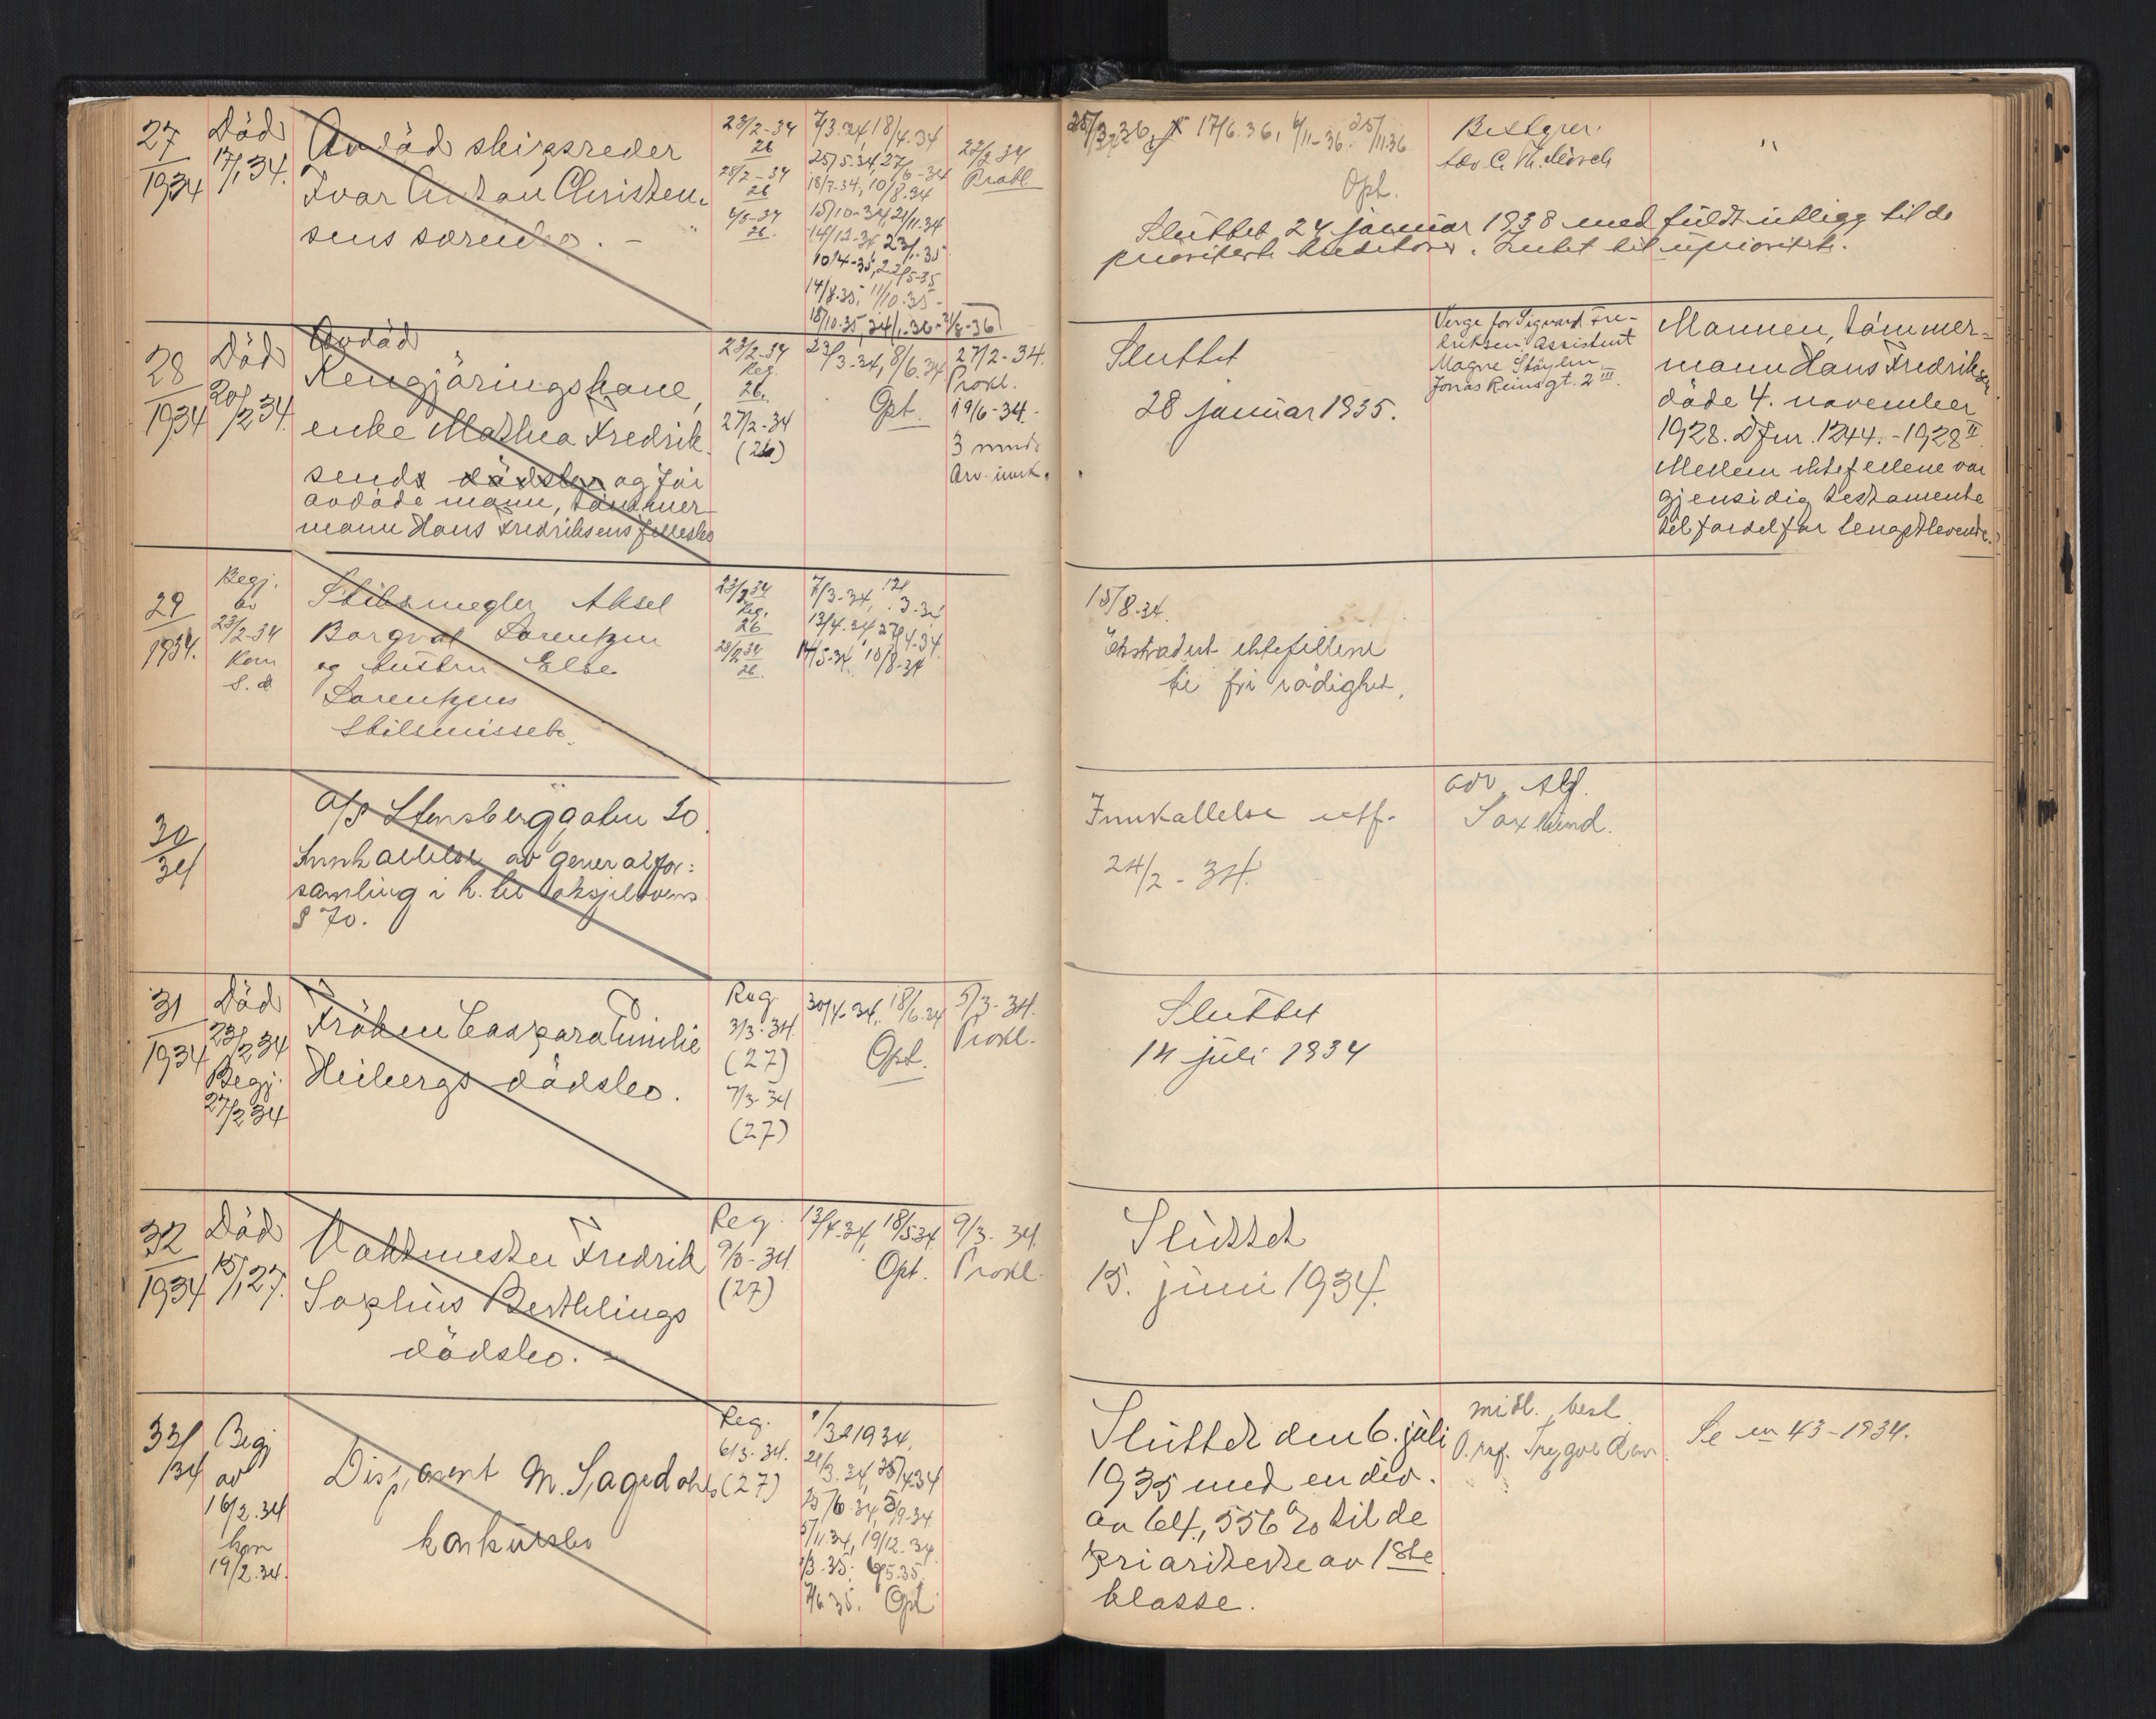 27
1934
Död
17/1 34.
Avdöd skipsreder
Ivar Anton Christen-
sens særeie
23/2-34
26
28/2-34
26
6/3-34
26.
7/3.34, 18/4.34
25/5.34, 27/6-34
18/7-34, 10/8-34
15/10-34, 21/11.34
14/12-34, 23/1-35
10/4-35, 22/5-35
14/8.35, 11/10.35-
18/10-35, 24/1-36-
22/2 34
25/3 36, 17/6.36, 6/11-36. 25/11 36
Opt.
Bestyrer:
"
Sluttet 24 januar 1938 med fuldt utlegg til de
prioriterte kreditorer. Intet til uprioriterte.
28
1934
Död
20/2 34.
Avdöd
Rengjöringskone,
enke Mathea Fredrik-
sends dödsbo og for
avdöde mann, tömmer-
mann Hans Fredriksens fellesbo
23/2-34
Reg.
26.
27/2-34
(26)
23/3-34, 8/6.34
Opt.
27/2-34.
Prokl.
19/6-34.
3 mnd.
Arv. innk.
Sluttet
28 januar 1935.
Verge for Sigurd Fre-
driksen: Assistent
Magne Stöylen
Jonas Reinsgt. 2 III.
Mannen, tömmer-
mann Hans Fredriksen
döde 4. november
1928. D. Jnr. 1244.-1928 II
Mellem ektefellene var
gjensidig testamente
til fordel for lengstlevende.
29
1934.
Begj.
av
23/2-34
Kom
s. d
Skibsmegler Aksel
Borgvat Lorentzen
og hustru Else
Lorentzens
Skilsmissebo.
23/2 34
Reg.
26
28/2 34
26.
7/3-34,
13/4-34, 27/4-34.
14/5-34. 15/8-34
15/8.34.
Ekstradert ektefellene
til fri rådighet.
30
34
A/S Stensberggaten 20.
Innkallelse av generalfor:
samling i h. til aksjelovens
§ 70.
Innkallelse utf.
24/2-34.
adv. Alf.
Saxlund.
31
1934
Död
23/2 34
Begj.
27/2 34
Fröken Caspara Emilie
Heibergs dödsbo.
Reg.
3/3-34.
(27)
7/3-34
(27)
30/4-34, 18/6.34
Opt.
5/3-34.
Prokl.
Sluttet
14 juli 1934
32
1934
Död
15/1 27.
Vaktmester Fredrik
Sophus Berthlings
dödsbo.
Reg.
9/3-34.
(27)
13/4-34, 18/5.34
Opt.
9/3-34.
Prokl.
Sluttet
15. juni 1934.
33
34
Begj
av
16/2.34
kon
19/2.34.
Disponent M. Sagedahls
konkursbo
Reg.
6/3-34.
(27)
21/3.34, 25/4-34
25/6.34, 5/9-34.
5/11.34, 19/12.34.
7/6 35. Opt
Sluttet den 6. juli
1935 med en div.
av 64,556 % til de
prioriterte av 1ste
klasse.
midl. best.
O.rsf. Trygve
Se nr 43-1934.